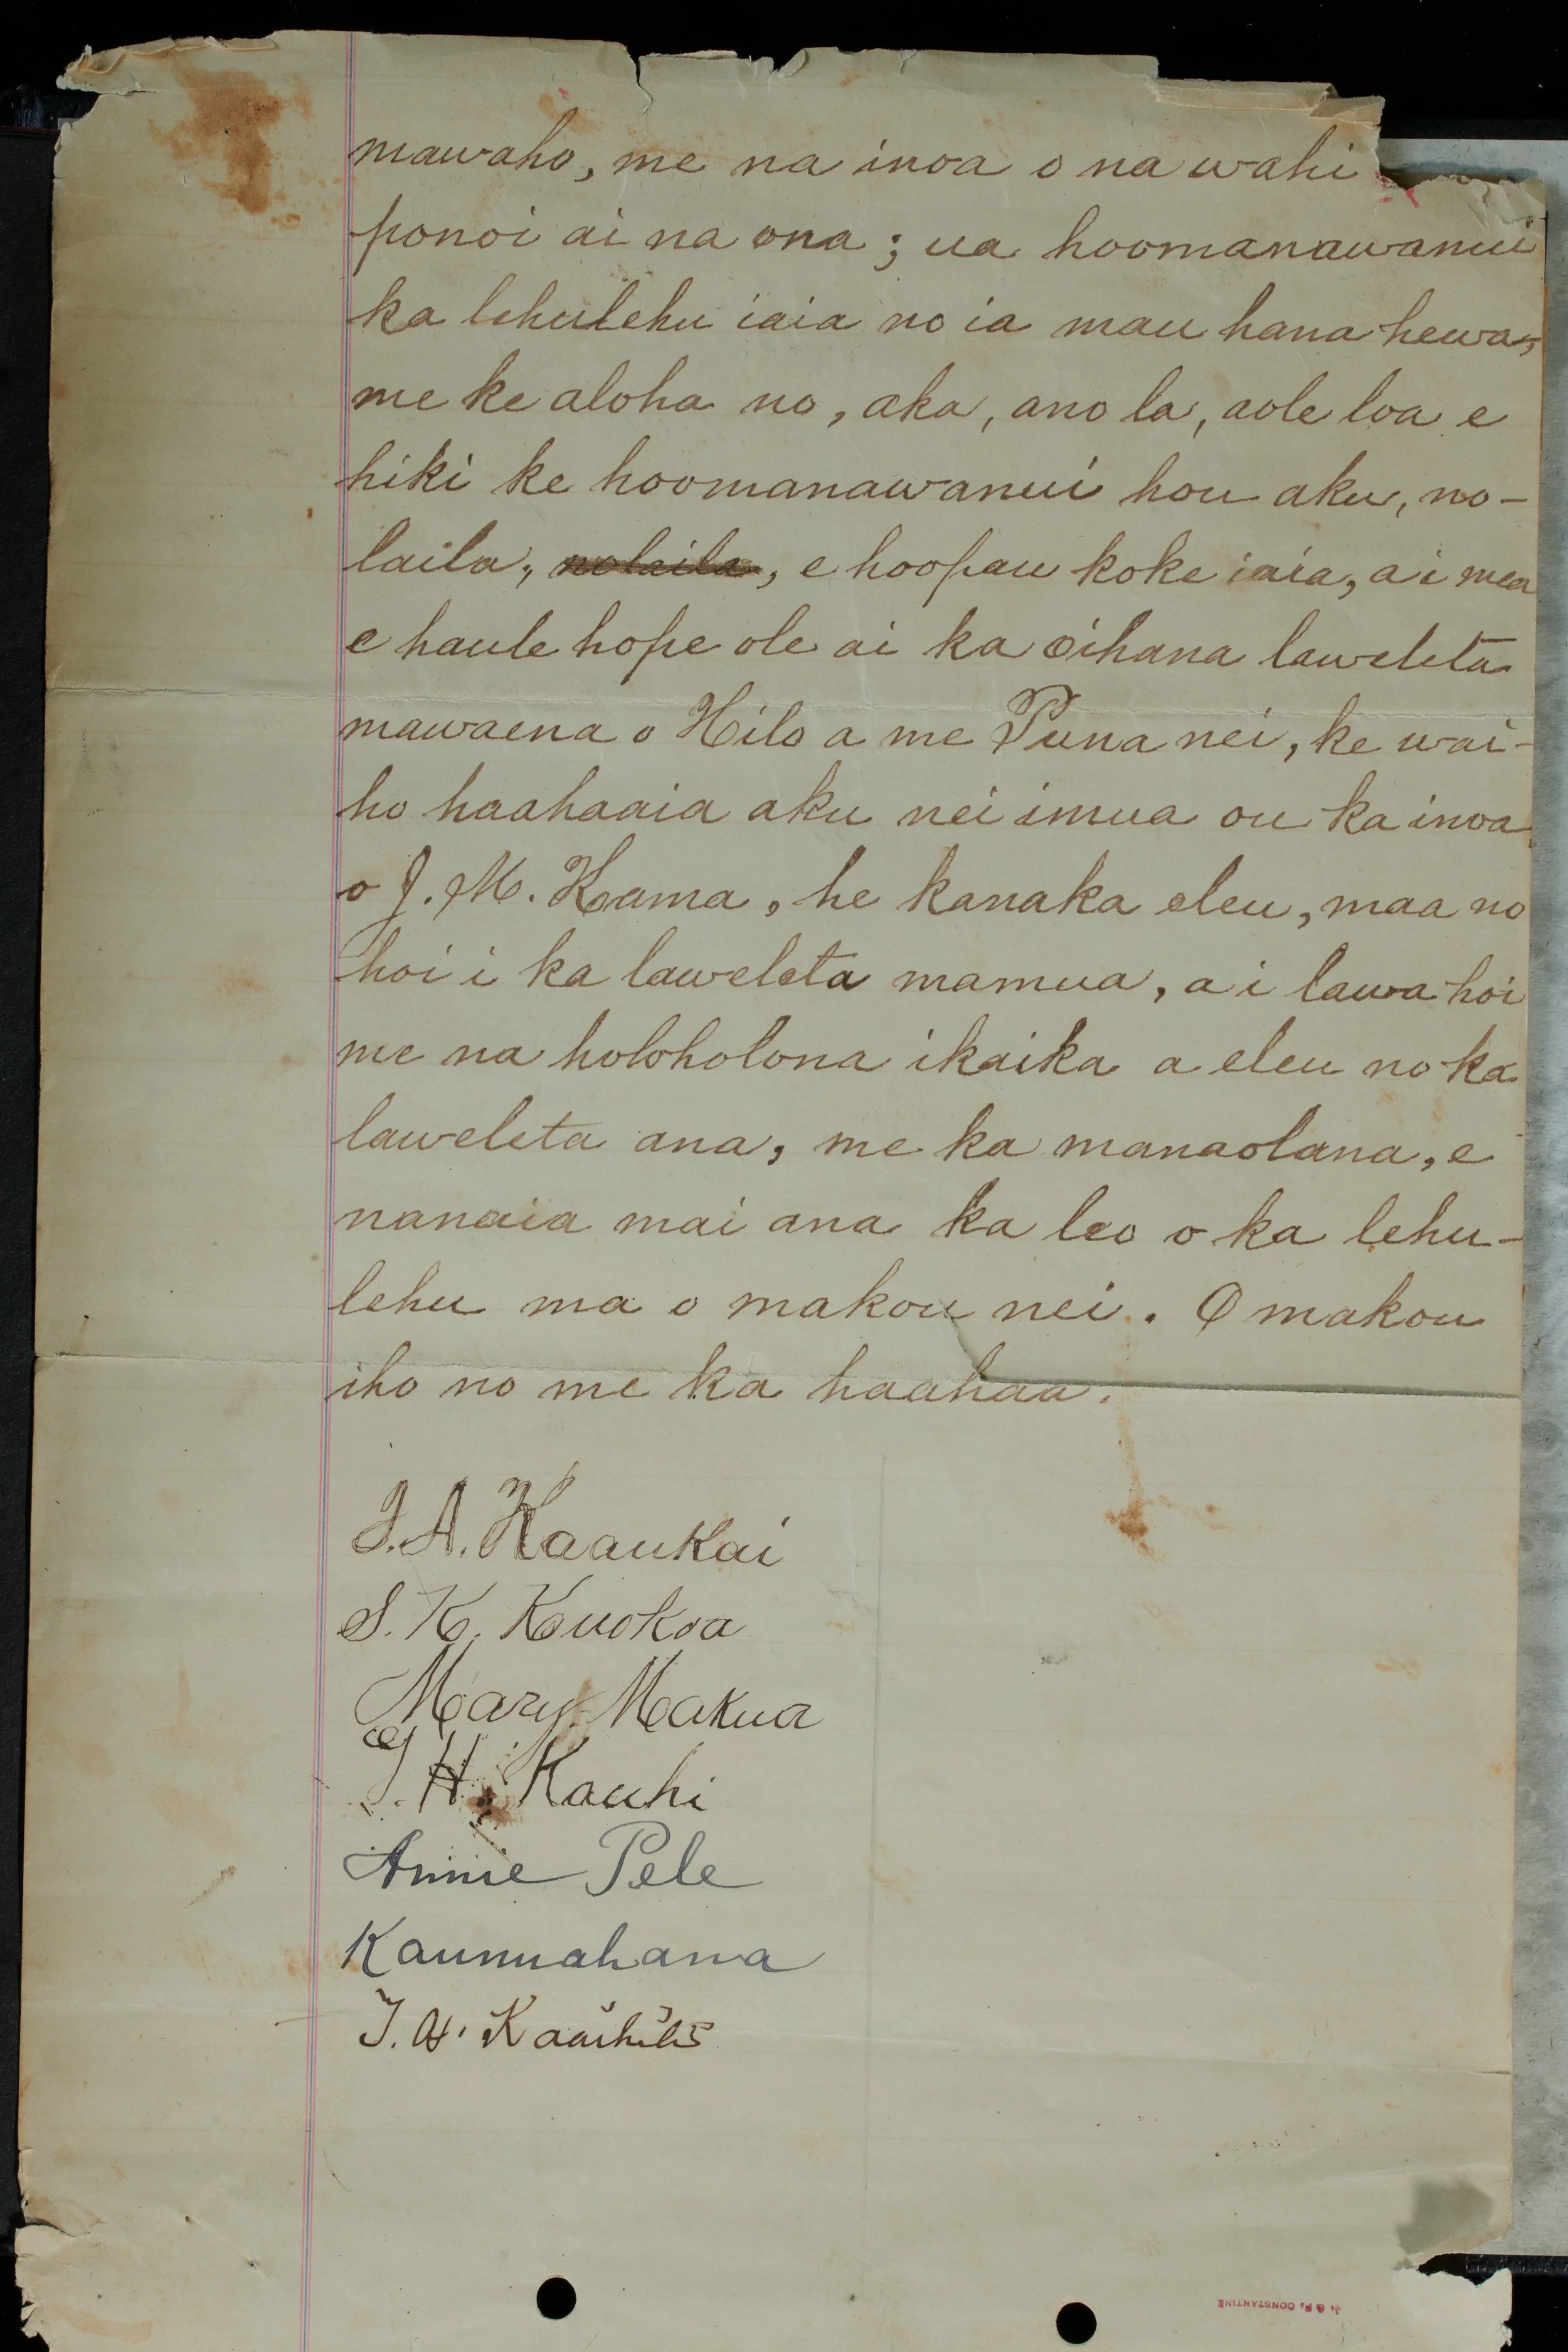 mawaho, me na inoa o na wahi
ponoi ai na ona; ua hoomanawanui
ka lehulehu iaia no ia mau hana hewa,
me ke aloha no, aka, ano la, aole loa e
hiki ke hoomanawanui hou aku, no-
laila, nolaila, e hoopau koke iaia, a i mea
e haule hope ole ai ka oihana laweleta
mawaena o Hilo a me Puna nei, ke wai-
ho haahaaia aku nei imua ou ka inoa
o J. M. Kama, he kanaka eleu, maa no
hoi i ka laweleta mamua, a i lawa hoi
me na holoholona ikaika a eleu no ka
laweleta ana, me ka manaolana, e
nanaia mai ana ka leo o ka lehu-
lehu ma o makou nei. O makou
iho no me ka haahaa.
J. A. Kaaukai
S. K. Kuokoa
Mary Makua
J. H. Kauhi
Annie Pele
Kaumuahana
J. & F. CONSTANTINE